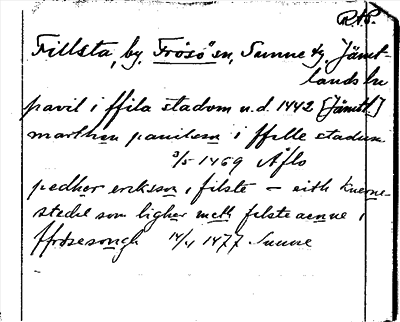 RAP.
Fillsta, by, Frösö sn, Sunne tg, Jämt-
lands län
pavil i ffila stadom u.d. 1442 [Jämtl.]
marthen pauilssn i ffille stadum
3/5 1469 Åflo
pedhor eriksson i filste – eith kuerne-
stedе som ligher meth filste aenne i
ffrösesongh 14/4 1477 Sunne